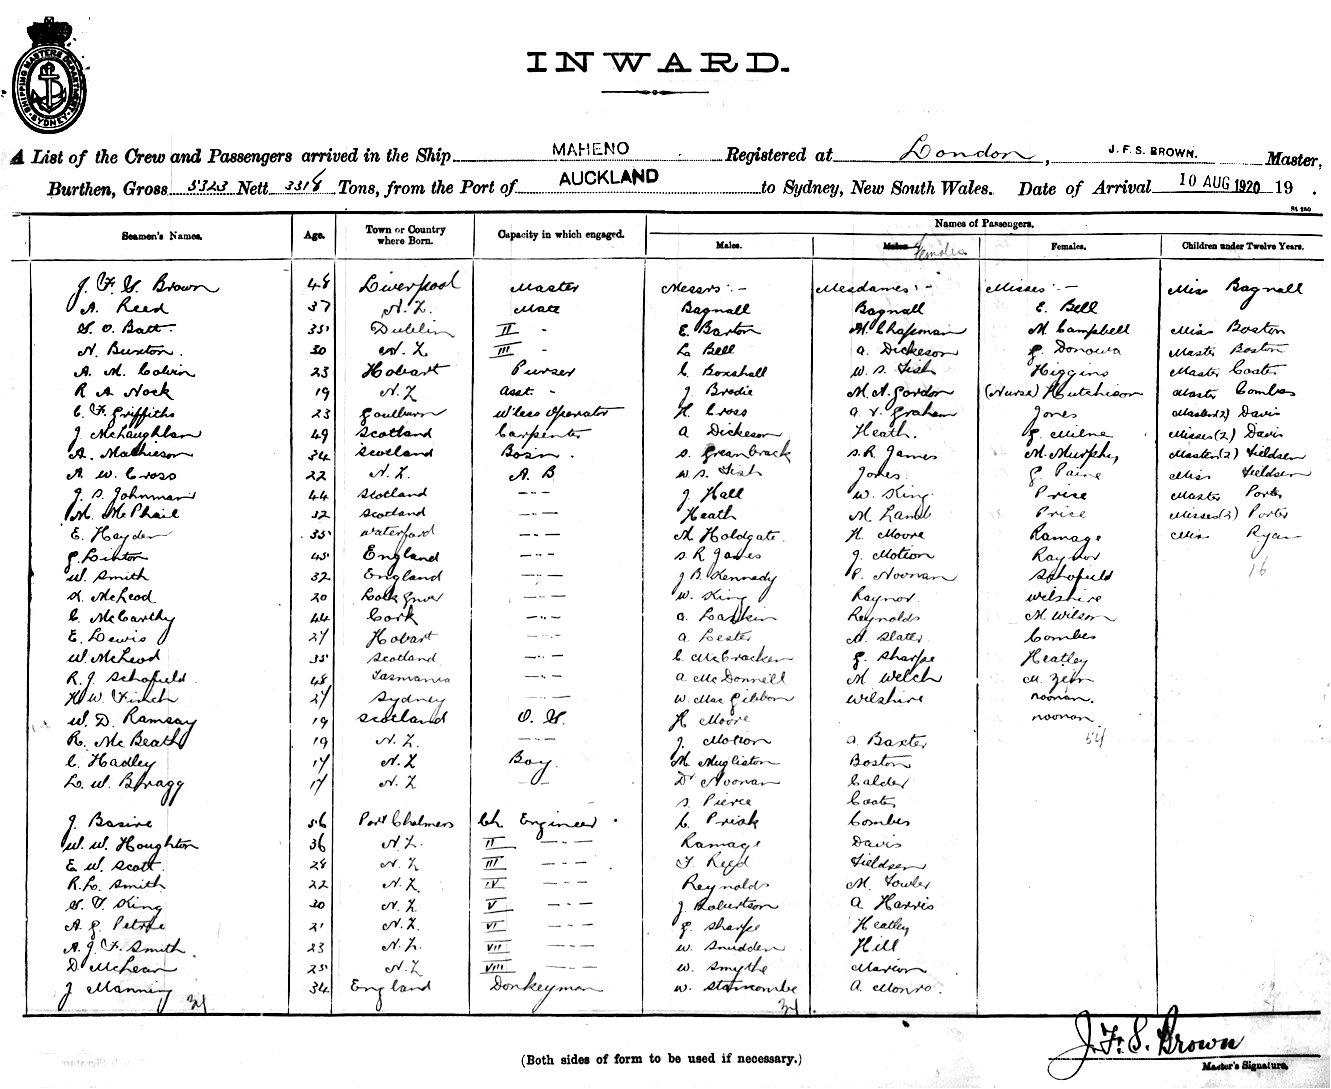 SHIPPING MASTERS DEPARTMENT SYDNEY
INWARD.
A List of the Crew and Passengers arrived in the Ship MAHENO Registered at London, J.F.S. BROWN. Master,
Burthen, Gross 5323 Nett 3318 Tons, from the Port of AUCKLAND to Sydney, New South Wales. Date of Arrival 10 AUG 1920 19 .
Seamen's Names. Age. Town or Country where Born. Capacity in which engaged. Names of Passengers.
Males. Males Females. Females. Children under Twelve Years.
J. F. S. Brown 48 Liverpool Master Messrs :- Mesdames :- Misses :- Miss Bagnall
A. Reed 37 N.Z. Mate Bagnall Bagnall E. Bell
S. O. Batt 35 Dublin II - E. Barton M. Chapman M. Campbell Miss Boston
N. Buxton. 30 N.Z. III - L. Bell A. Dickeson G. Donowa Master Boston
A. M. Colvin 23 Hobart Purser C. Boxshall W. S. Fish Higgins Master Coates
R A Nock 19 N.Z. Asst. - J. Brodie M. N. Gordon (Nurse) Hutchison Master Combes
C. F. Griffiths 23 Goulburn W'less Operator H. Cross A. V. Graham Jones Masters(2) Davis
J. McLaughlan 49 Scotland Carpenter A Dickeson Heath. G. Milne Misses(2) Davis
A. Mathieson 34 Scotland Bosin. S. Greenbrack S. R. James M. Murphy Masters(2) Fieldsen
A W. Cross 22 N.Z. A. B W. S. Fish Jones G. Paine Miss Fieldsen
J. S. Johnman 44 Scotland -·- J. Hall W. King. Price Master Porter
M. McPhail 32 Scotland -·- Heath M. Lamb Price Misses(2) Porter
E. Hayden 35 Waterford -·- M Holdgate. H. Moore Ramage Miss Ryan
G. Linton 45 England -·- S. R. James J. Motion Raynor 16
W. Smith 32 England -·- J B. Kennedy P. Noonan Schofield
K. McLeod 20 -·- W. King Raynor Wilshire
C. McCarthy 44 Cork -·- A. Larkin Reynolds M. Wilson
E. Lewis 27 Hobart -·- A. Lester M. Slater Combes
W. McLeod 35 Scotland -·- C. McCracken G. Sharpe Heatley
R. J. Schofield. 48 Tasmania -·- A McDonnell M Welch M. Zein
H. W. Finch 27 Sydney -·- W. MacGibbon Wilshire Noonan.
W. D. Ramsay 19 Scotland O. S. H Moore Noonan
R. McBeath 19 N.Z. -·- J. Motion A. Baxter 54
C. Hadley 17 N.Z. Boy. M. Mugliston Boston
L. W. Bragg 17 N.Z. -·- Dr Noonan Calder
S. Pierce Coates
J. Basire 56 Port Chalmers Ch. Engineer. C. Priak Combes
W. W. Houghton 36 N.Z. II -·- Ramage Davis
E. W. Scott. 28 N.Z. III -·- T. Reed Fieldsen
R. L. Smith 22 N.Z. IV -·- Reynolds M. Fowler
S. F. King 30 N.Z. V -·- J Robertson A Harris
A. G. Petrie 21 N.Z. VI -·- G. Sharpe Heatley
A. J. F. Smith. 23 N.Z. VII -·- W. Snudden Hill
D. McLean 25 N.Z. VIII -·- W. Smythe Marion
J. Manning 34 England Donkeyman W. Stancombe A. Monro.
34 34
J. F. S. Brown
(Both sides of form to be used if necessary.) Master's Signature.